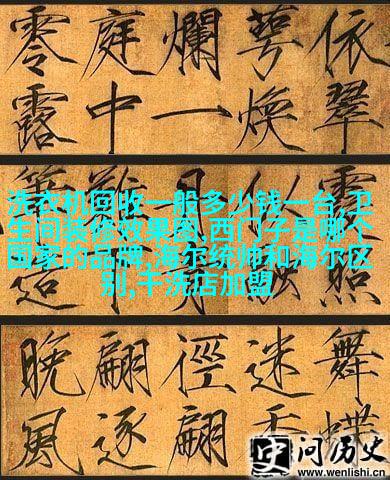 依翠
萼煥
爛一
庭中
零露
洗衣机回收一般多少钱一台,卫
生间装修效果图,西门子是哪个
国家的品牌,海尔统帅和海尔区
别,干洗店加盟
舞蝶
迷香
徑翩
翩逐
晚風
问历史
www.wenlishi.cn